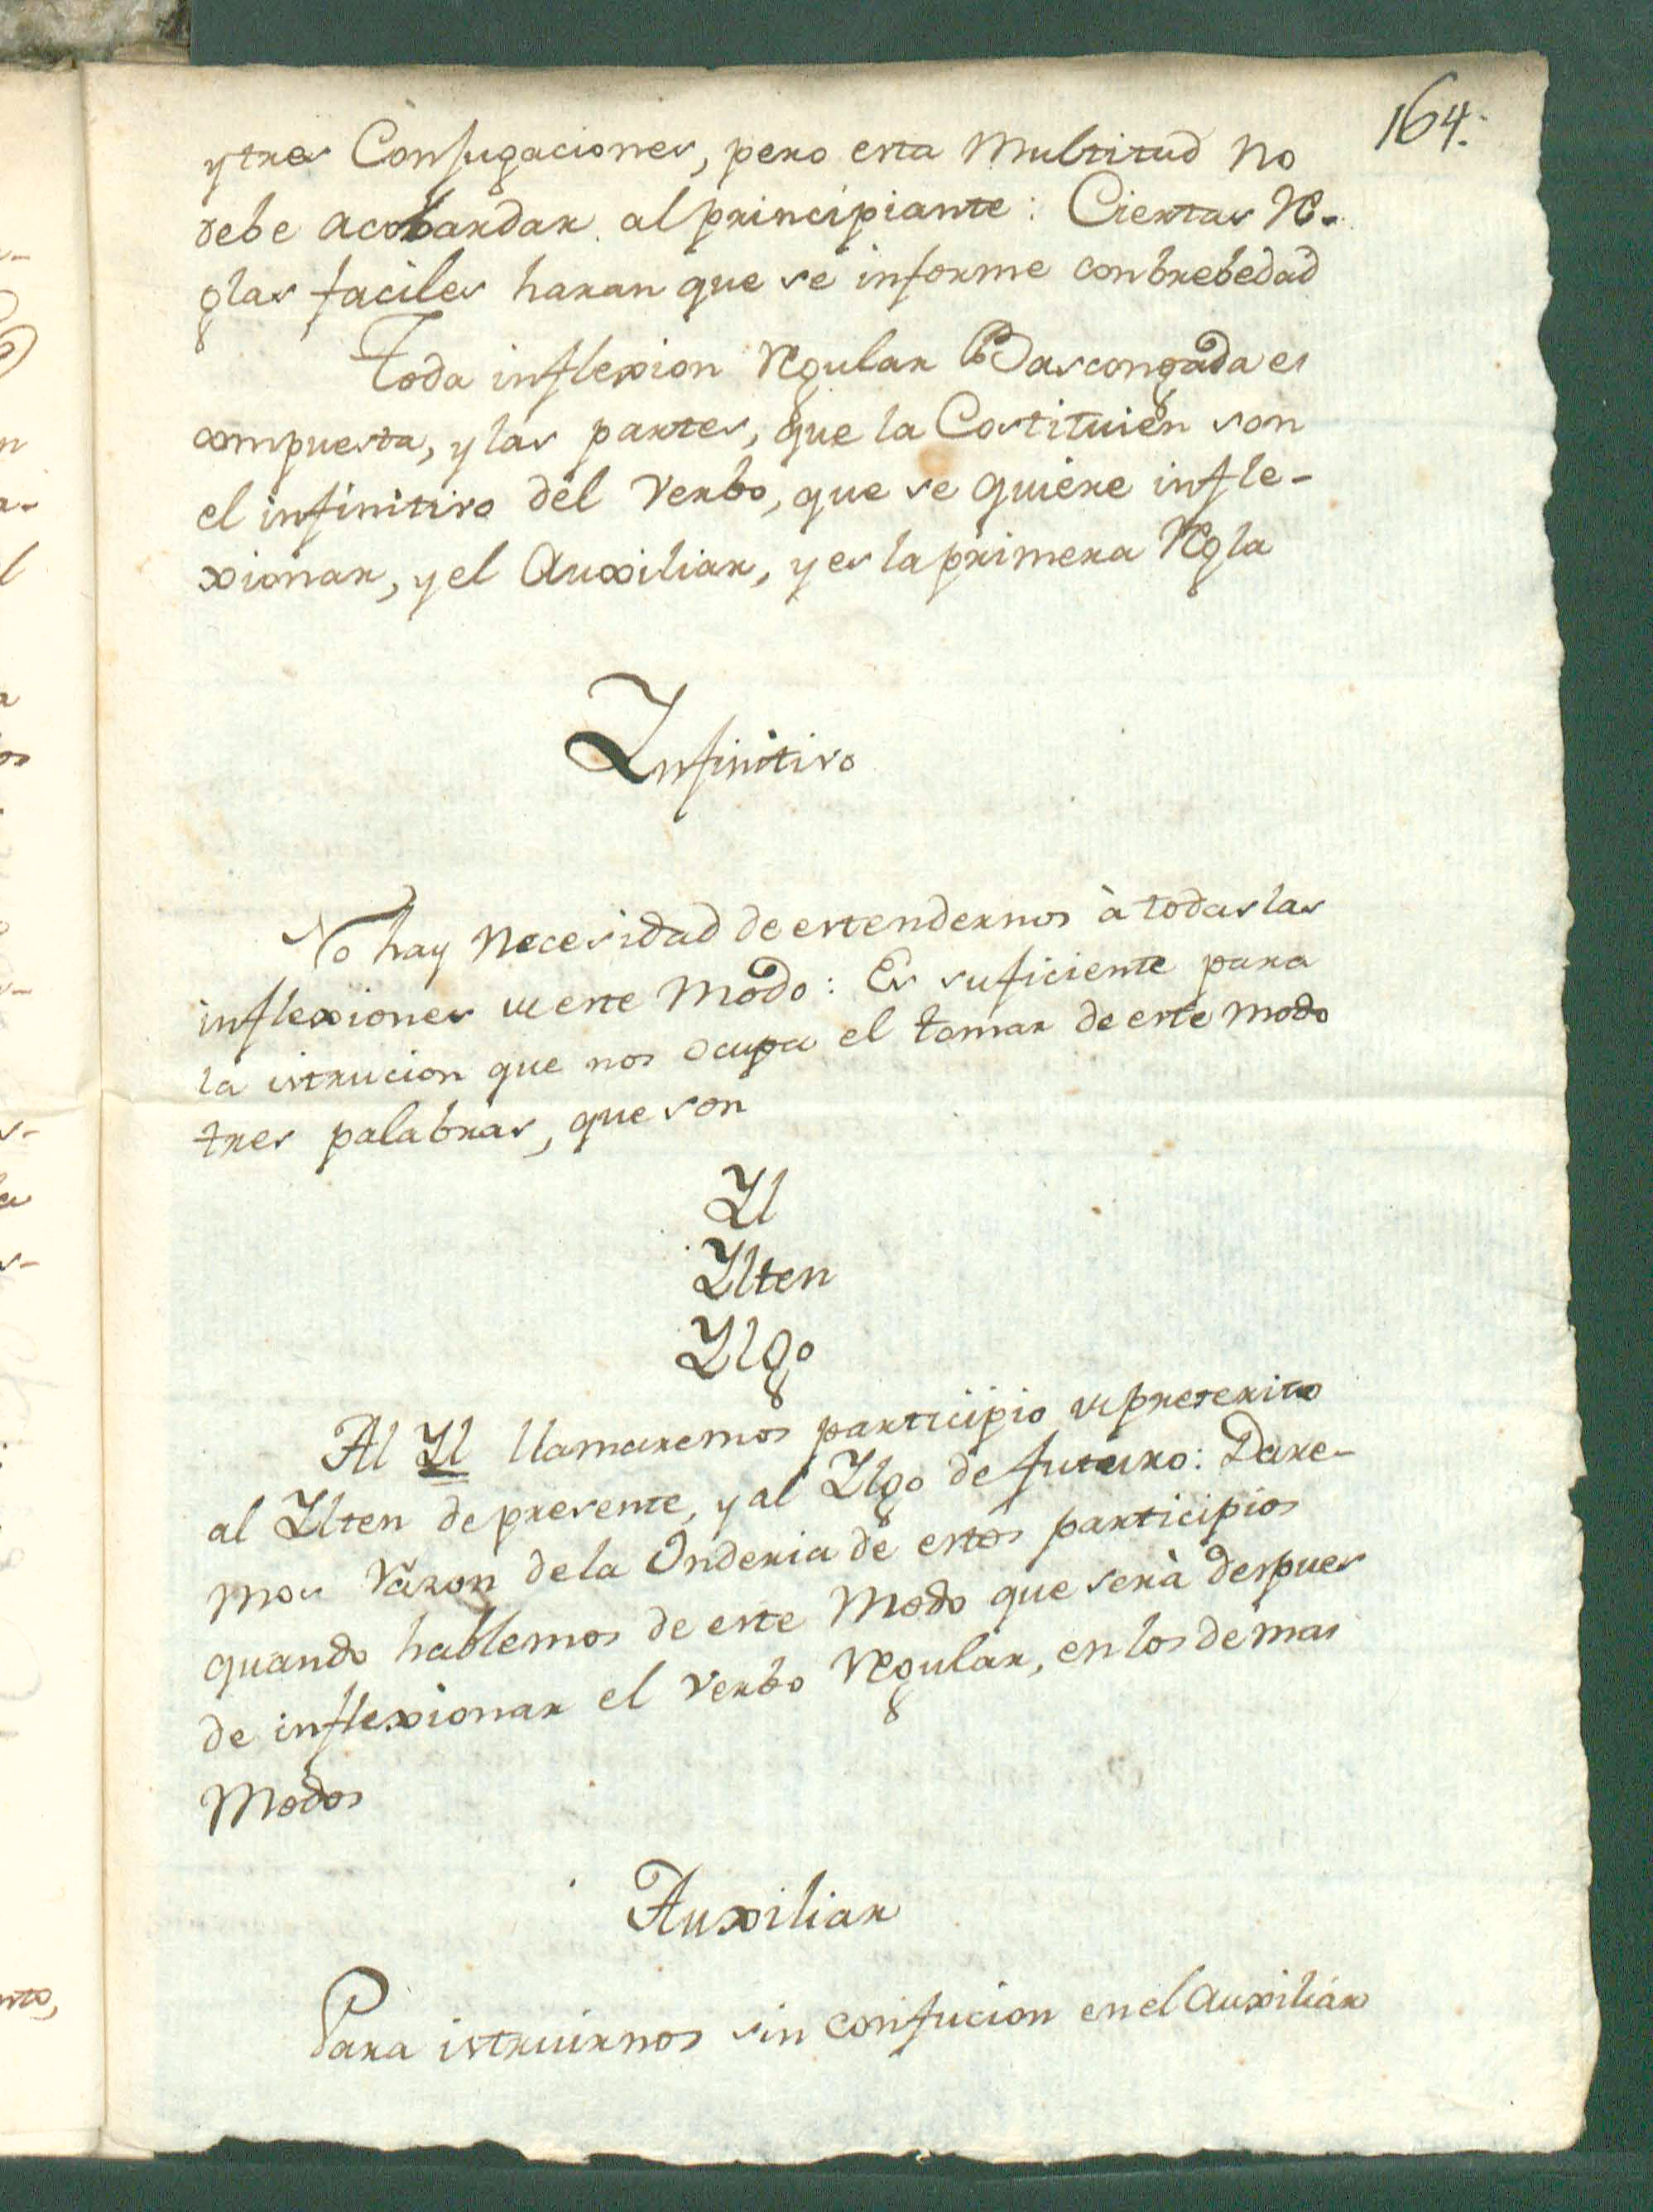 164.
y tres Conjugaciones, pero esta Multitud no
debe acobardar al principiante: Ciertas Re-
glas faciles haran que se informe con brebedad
Toda inflexion Regular Bascongada es
compuesta, y las partes, que la Costituien son
el infinitivo del Verbo, que se quiere infle-
xionar, y el Auxiliar, y es la primera Regla
Infinitivo
No hay Necesidad de estendernos à todas las
inflexiones de este Modo: Es suficiente para
la istrucion que nos ocupa el tomar de este modo
tres palabras, que son
Il
Ilten
Ilgo
Al Il llamaremos participio de preterito
al Ilten de presente, y al Ilgo de futuro: Dare-
mos razon de la de estos participios
quando hablemos de este Modo que serà despues
de inflexionar el Verbo Regular, en los demas
Modos
Auxiliar
Para istruirnos sin confucion en el Auxiliar